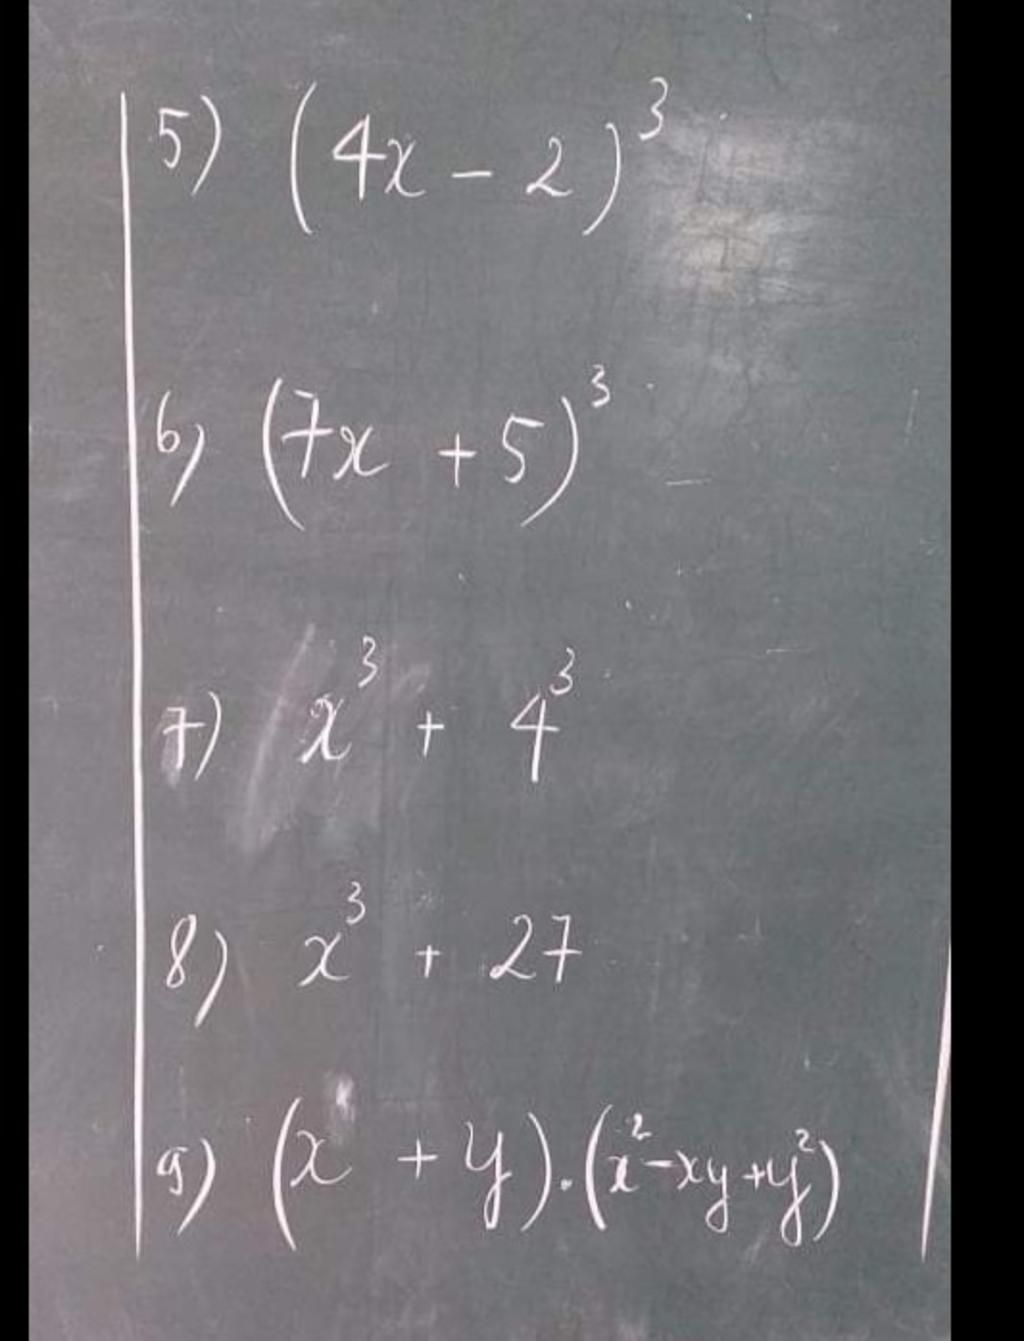 5) (4x - 2)³
6) (7x + 5)³
7) x³ + 4³
8) x³ + 27
9) (x + y).(x² - xy + y²)